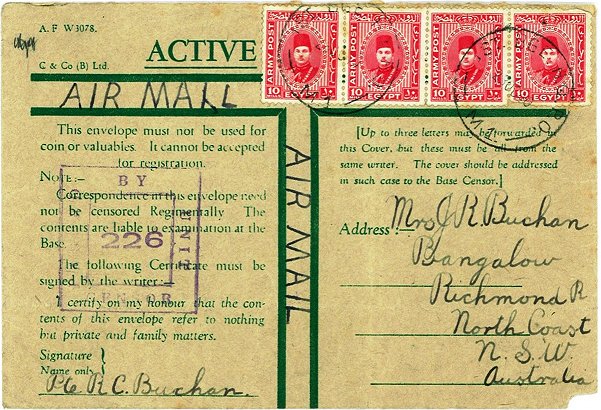 A. F W3078.
ACTIVE
C & Co (B) Ltd.
AIR MAIL
This envelope must not be used for
coin or valuables. It cannot be accepted
for registration.
NOTE:—
Correspondence in this envelope need
not be censored Regimentally. The
contents are liable to examination at the
Base.
The following Certificate must be
signed by the writer:—
I certify on my honour that the con-
tents of this envelope refer to nothing
but private and family matters.
Signature }
Name only }
Pte R. C. Buchan.
BY
226
AIR MAIL
ARMY POST
10 EGYPT ١٠
ARMY POST
10 EGYPT ١٠
ARMY POST
10 EGYPT ١٠
ARMY POST
10 EGYPT ١٠
[Up to three letters may be forwarded in
this Cover, but these must be all from the
same writer. The cover should be addressed
in such case to the Base Censor.]
Address:—
Mrs J. R. Buchan
Bangalow
Richmond R
North Coast
N. S. W.
Australia